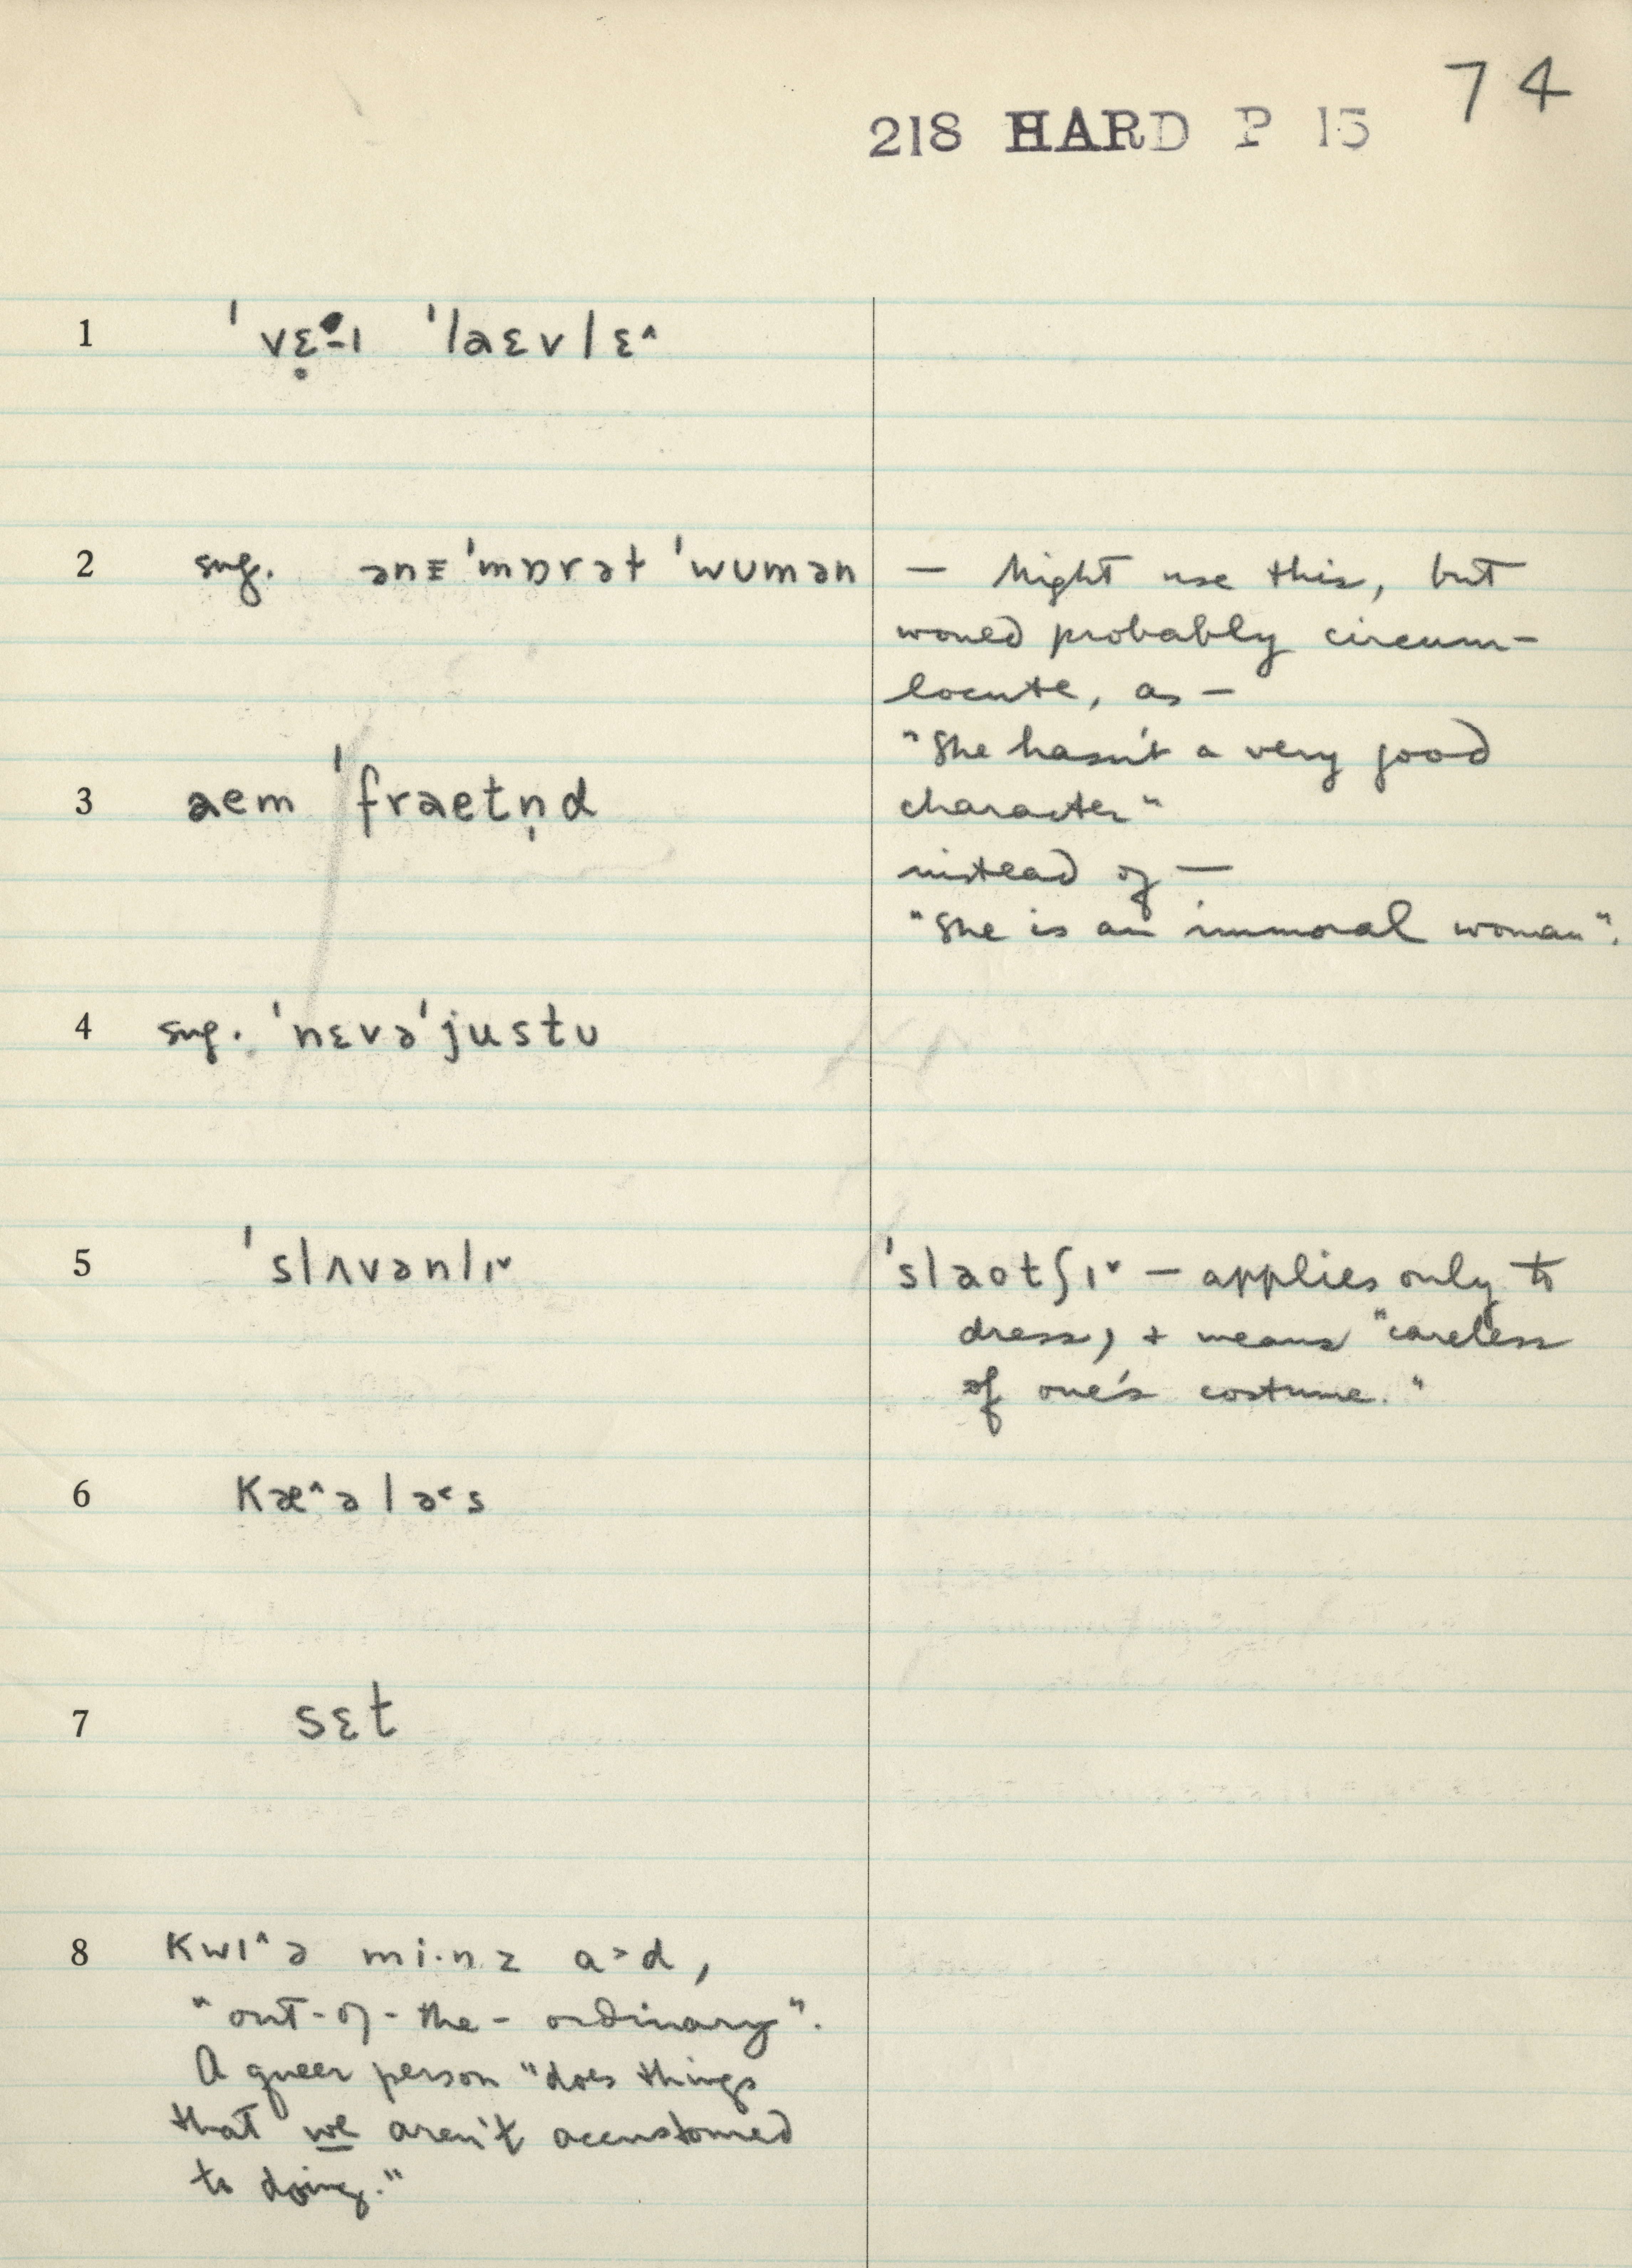 74
218 HARD P 15
1 ˈvɛ̣-ɪ ˈlaɛvlɛ˄
2 sug. ənɪˈmɒrəɫ ˈwumən — Might use this, but
would probably circum-
locute, as —
"She hasn't a very good
3 aem ˈfraetn̩d character"
instead of —
"She is an immoral woman".
4 sug. ˈnɛvəˈjustu
5 ˈslʌvənlɪ˅ ˈslaotʃɪ˅ — applies only to
dress, + means "careless
of one's costume."
6 Kæ˄ələ˂s
7 sɛt
8 Kwɪ˄ə mi·nz ɑ˃d,
"out-of-the-ordinary".
A queer person "does things
that we aren't accustomed
to doing."